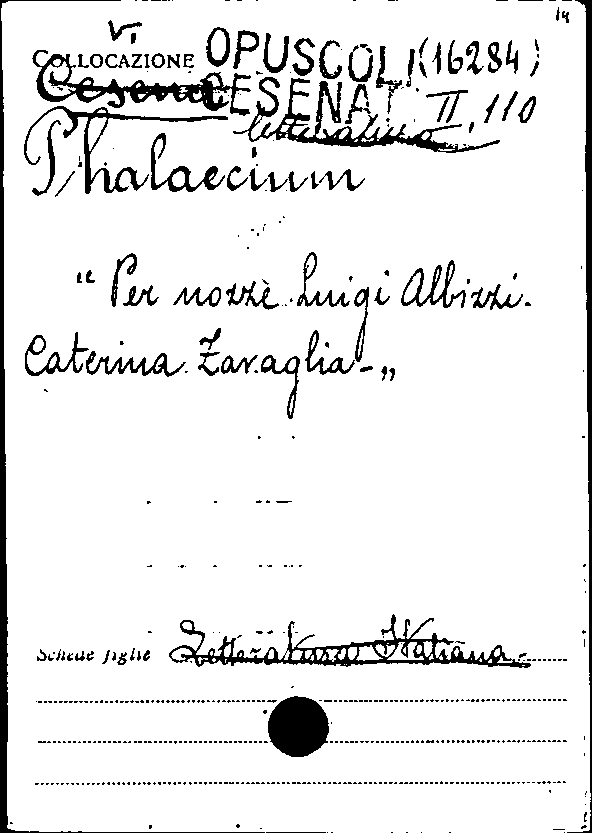 14
V.
COLLOCAZIONE OPUSCOLI (16284)
Cesena CESENAT. II, 110
letteratura
Phalaecium
“ Per nozze Luigi Albizzi.
Caterina Zavaglia - „
Schede figlie Letteratura Italiana -